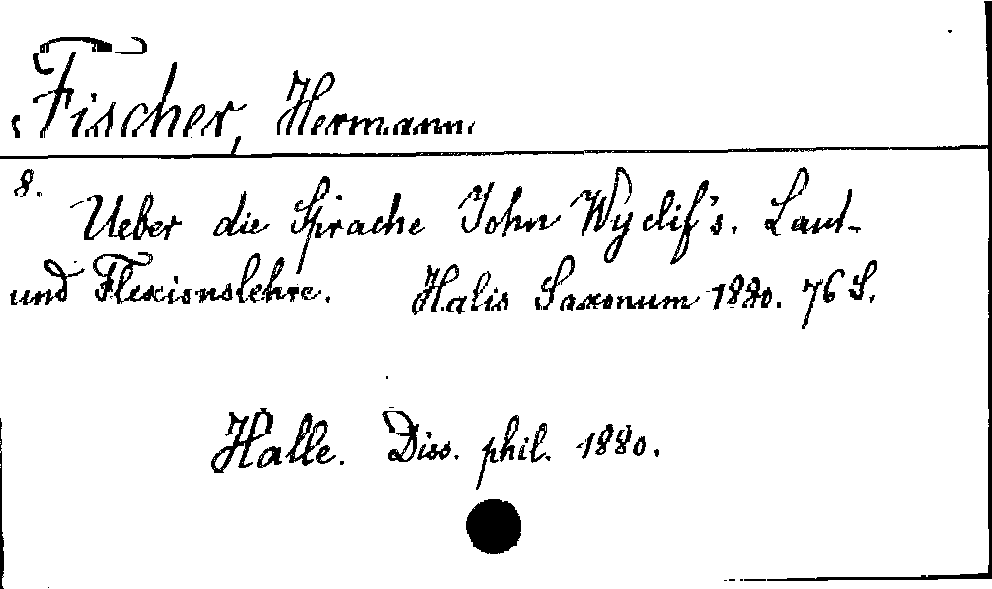 Fischer, Hermann.
8.
Ueber die Sprache John Wyclif's. Laut-
und Flexionslehre. Halis Saxonum 1880. 76 S.
Halle. Diss. phil. 1880.